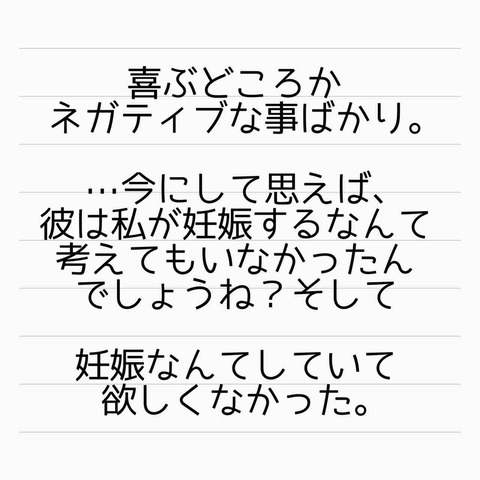 喜ぶどころか
ネガティブな事ばかり。
…今にして思えば、
彼は私が妊娠するなんて
考えてもいなかったん
でしょうね？そして
妊娠なんてしていて
欲しくなかった。